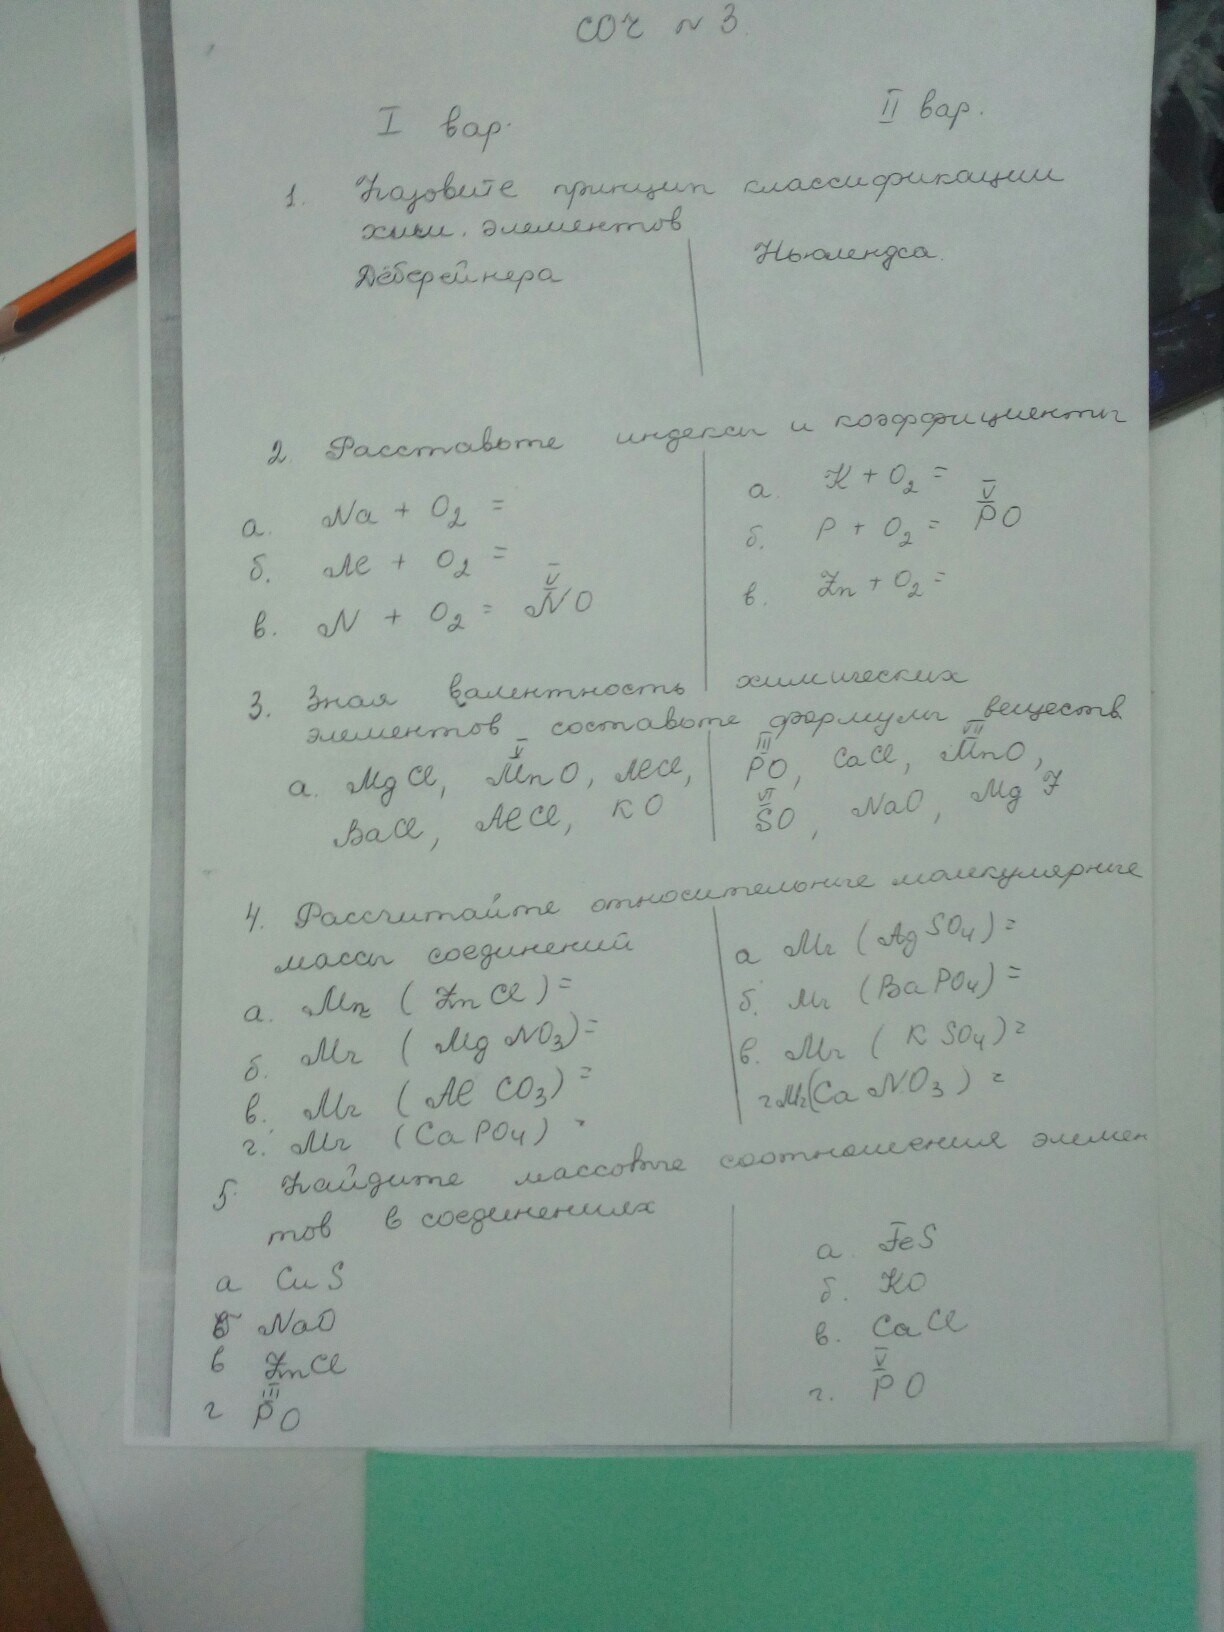 СОЧ № 3
I вар.
II вар.
1. Назовите принцип классификации
хим. элементов
Дёберейнера
Ньюлендса.
2. Расставьте индексы и коэффициенты
а. Na + O2 =
б. Al + O2 =
V
в. N + O2 = NO
а. K + O2 =
V
б. P + O2 = PO
в. Zn + O2 =
3. Зная валентность химических
элементов составьте формулы веществ
V
а. MgCl, MnO, AlCl,
BaCl, AlCl, KO
III VII
PO, CaCl, MnO,
VI
SO, NaO, MgF
4. Рассчитайте относительные молекулярные
массы соединений
а. Mr (ZnCl) =
б. Mr (MgNO3) =
в. Mr (AlCO3) =
г. Mr (CaPO4) =
а Mr (AgSO4) =
б. Mr (BaPO4) =
в. Mr (KSO4) =
г Mr (CaNO3) =
5. Найдите массовые соотношения элемен
тов в соединениях
а CuS
б NaO
в ZnCl
III
г PO
а. FeS
б. KO
в. CaCl
V
г. PO